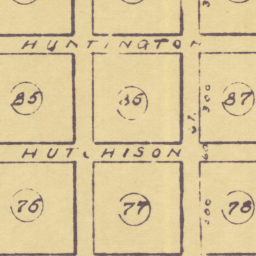 HUNTINGTON
85 86 87
300
ST.
HUTCHISON
60
76 77 78
300